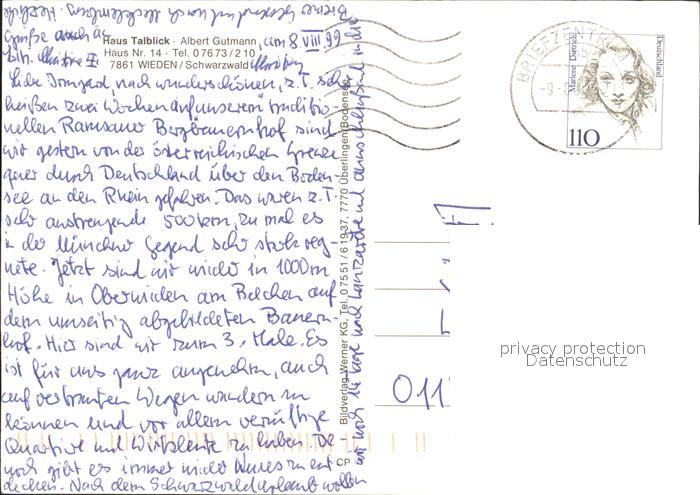 Haus Talblick · Albert Gutmann
Haus Nr. 14 · Tel. 07673/210
7861 WIEDEN / Schwarzwald
am 8. VIII. 99
Liebe Irmgard, nach wunderschönen, z.T. sehr
heißen zwei Wochen auf unserem traditio-
nellen Ramsauer Bergbauernhof sind
wir gestern von der österreichischen Grenze
quer durch Deutschland über den Boden-
see an den Rhein gefahren. Das waren z.T.
sehr anstrengende 500 km, zumal es
in der Münchner Gegend sehr stark reg-
nete. Jetzt sind wir wieder in 1000m
Höhe in Oberwieden am Belchen auf
dem umseitig abgebildeten Bauern-
hof. Hier sind wir zum 3. Male. Es
ist für uns ganz angenehm, auch
auf vertrauten Wegen wandern zu
können und vor allem vernünftige
Quartiere und Wirtsleute zu haben. De-
noch gibt es immer wieder Neues zu ent-
decken. Nach dem Schwarzwaldurlaub wollen
wir noch und anschließend
Grüße auch
Bildverlag Werner KG, Tel. 07551/61937, 7770 Überlingen/Bodensee
CP
BRIEFZENTRUM
-9.-8
Marlene Dietrich
Deutschland
110
011
privacy protection
Datenschutz